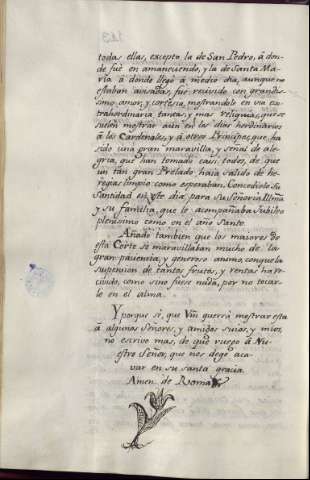 todas ellas, excepto la de San Pedro, á don-
de fué en amaneciendo, y la de Santa Ma-
ría á donde llegó á medio dia, aunque no
estaban avisados, fué recivido con grandis-
simo amor, y cortesia, mostrandole en via ex-
traordinaria tantas, y mas reliquias, que se
suelen mostrar aún en los dias
á los Cardenales, y á otros Principes, que ha
sido una gran maravilla, y señal de ale-
gria, que han tomado casi todos, de que
un tan gran Prelado, haia salido de he-
regias limpio como esperaban. Concediole Su
Santidad en este dia para su Señoria Illma
y su familia, que le acompañaba Jubileo
plenisimo como en el año Santo.
Añado tambien que los maiores de
esta Corte se maravillaban mucho de la
gran paciencia, y generoso animo, conque la
suspension de tantos frutos, y rentas ha re-
civido, como sino fuese nada, por no tocar-
le en el alma.
Yporque sé, que Vm querrá mostrar esta
á algunos Señores, y amigos suios, y mios,
no escrivo mas, de que ruego á Nu-
estro Señor, que nos dege aca-
var en su santa gracia.
Amen. de Roma